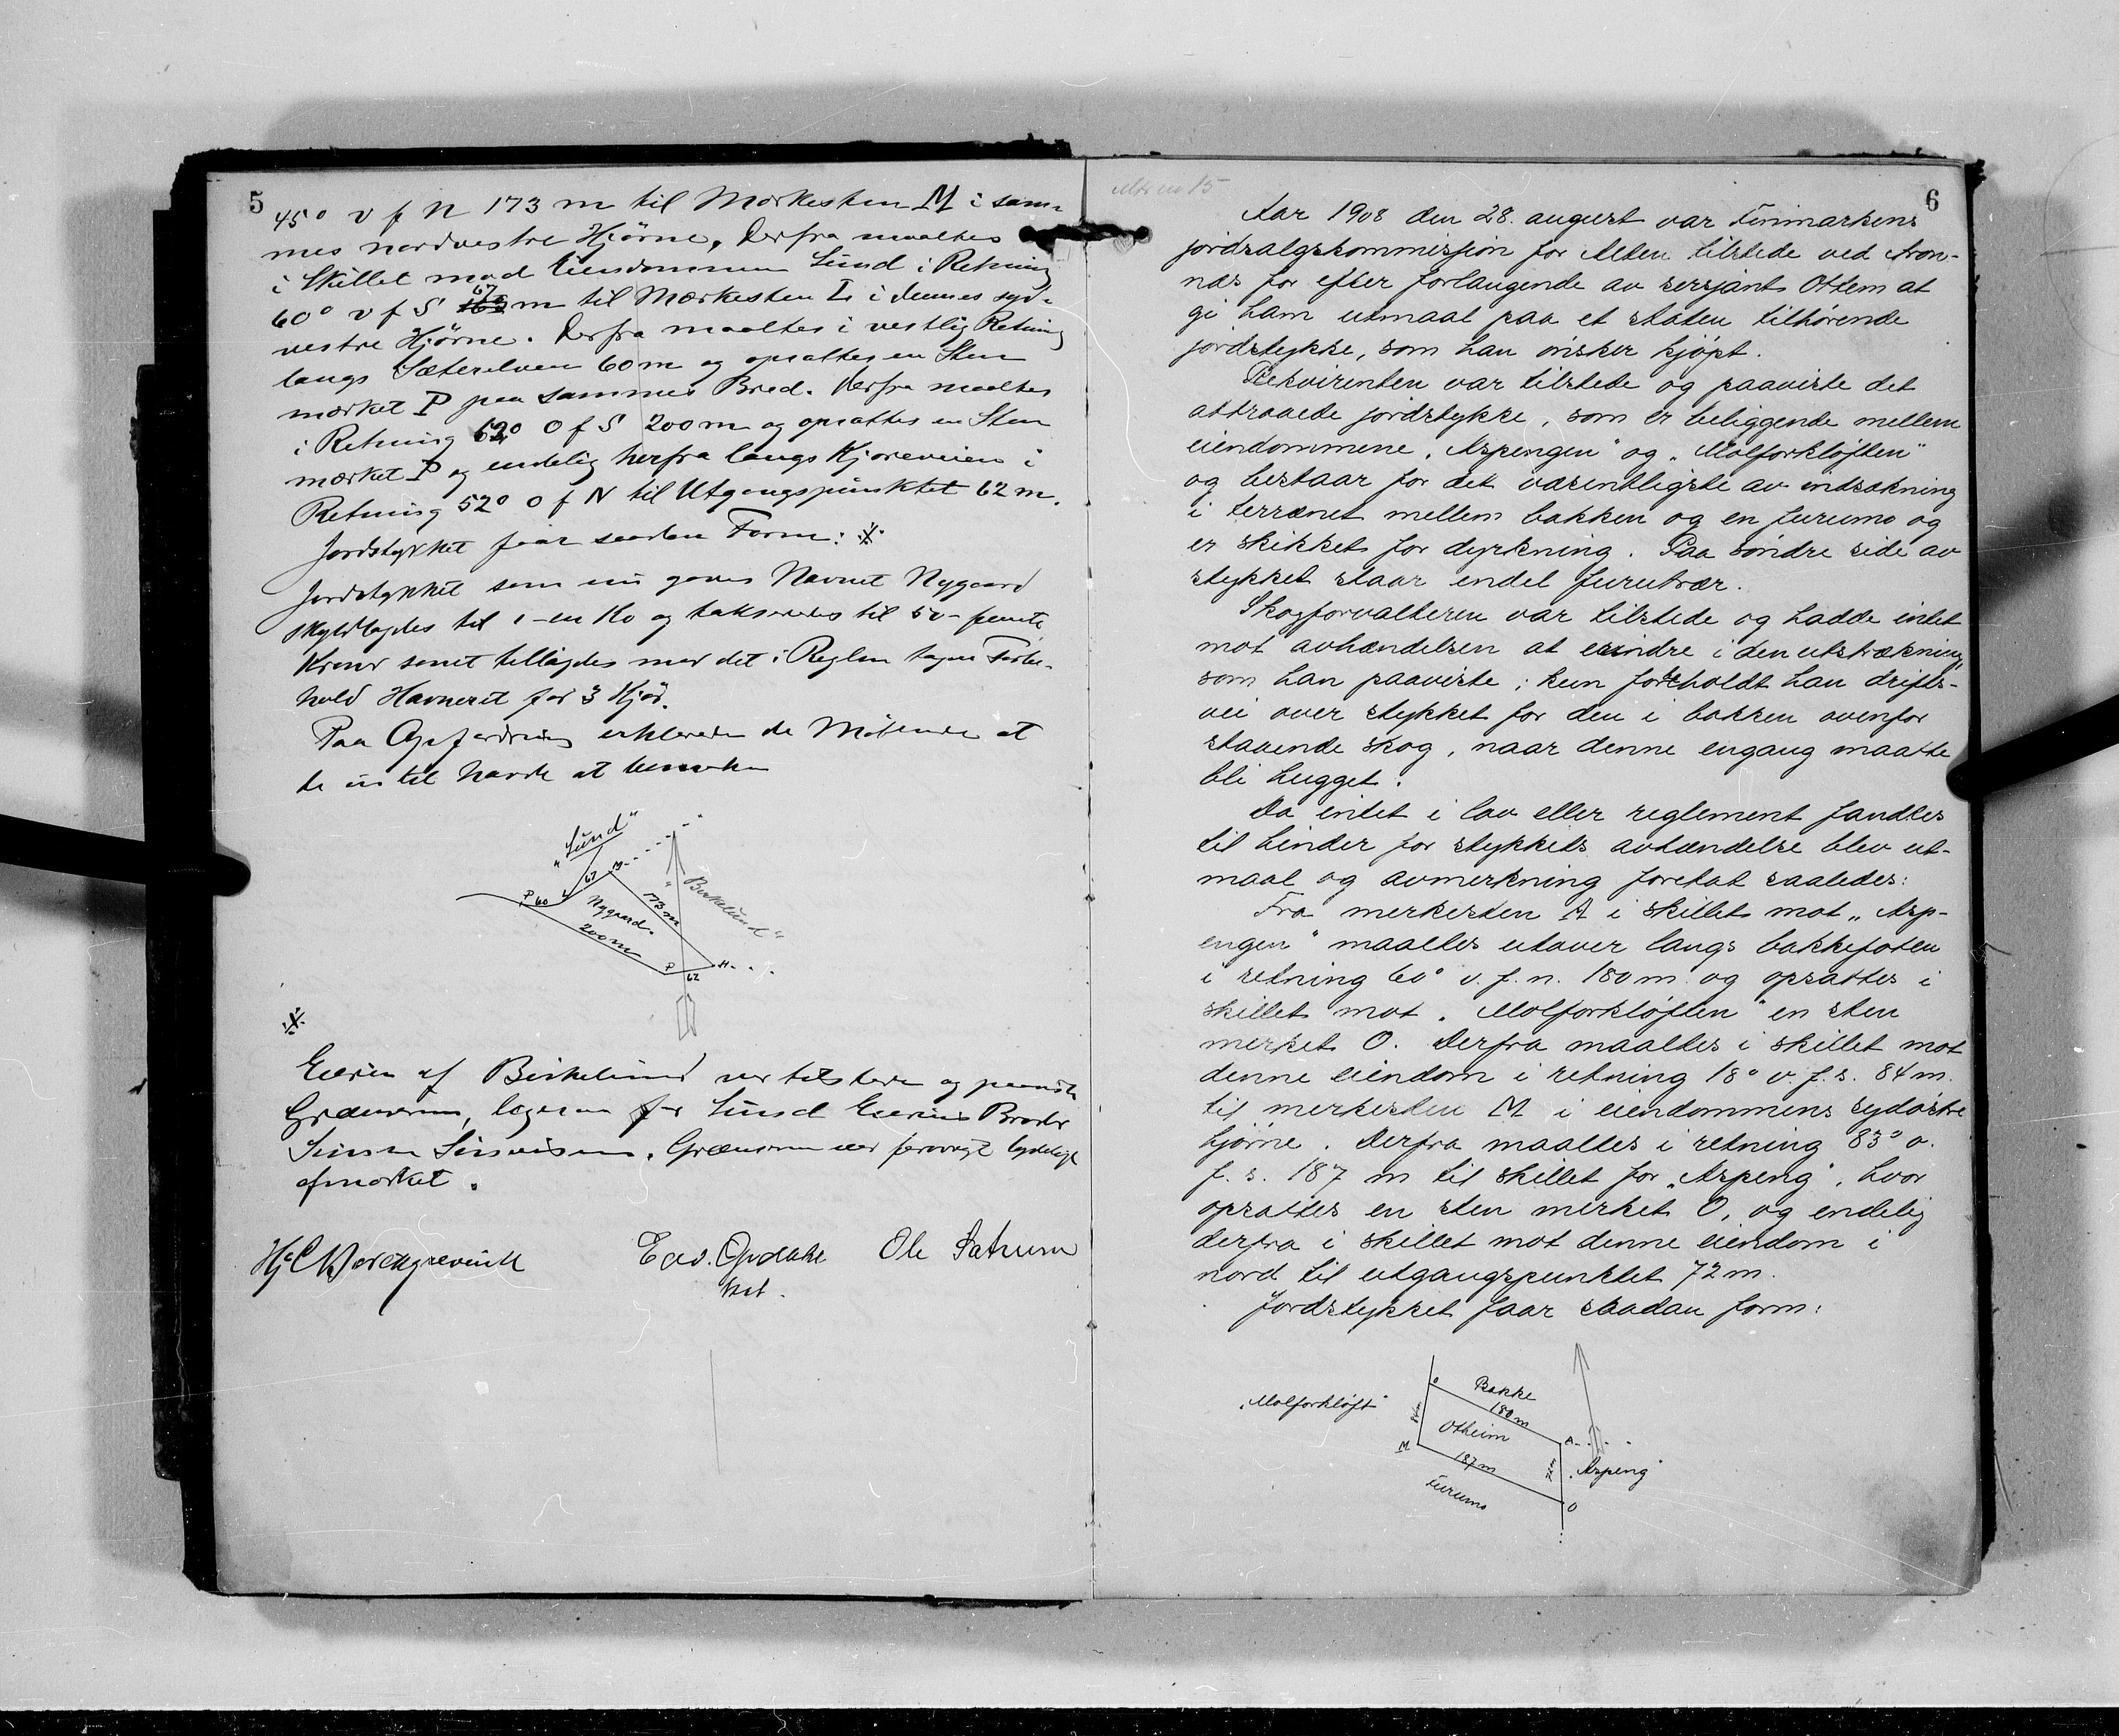 5
45° v f N 173 m til Mærkesten M i sam-
mes nordvestre Hjørne. Derfra maaltes
i Skillet mod Eiendommen Lund i Retning
60° v f S 67 m til Mærkesten L i dennes syd-
vestre Hjørne. Derfra maaltes i vestlig Retning
langs Sæterelven 60 m og opsattes en Sten
mærket P paa sammes Bred. Derfra maaltes
i Retning 52° O f S 200 m og opsattes en Sten
mærket P og endelig herfra langs Kjøreveien i
Retning 52° O f N til Utgangspunktet 62 m.
Jordstykket faar saadan Form:
Jordstykket som nu gaves Navnet Nygaard
skyldlagdes til 1 - en Ko og takseredes til 50 - femti
Kroner samt tillagdes med det i Reglen tagne Forbe-
hold Havneret for 3 Kjør.
Paa Opfordring erklærede de Mødende at
de intet havde at bemærke
"Lund"
M
67
L
P 60
173 m
"Birkelund"
Nygaard
200 m
P
H
62
Eieren af Birkelund var tilstede og paaviste
Grænserne, ligesaa for Lund Eierens Broder
. Grænserne var forøvrigt tydeligt
afmærket.
Edv. Opdahl Ole Sætrum
6
Aar 1908 den 28. august var Finmarkens
jordsalgskommission for Alten tilstede ved Aron-
næs for efter forlangende av sersjant Ottem at
gi ham utmaal paa et staten tilhørende
jordstykke, som han ønsker kjøpt.
Rekvirenten var tilstede og paaviste det
attraaede jordstykke, som er beliggende mellem
eiendommene "Aspengen" og "Molforkløften"
og bestaar for det væsentligste av indsøkning
i terrænet mellem bakken og en furumo og
er skikket for dyrkning. Paa søndre side av
stykket staar endel furutrær.
Skogforvalteren var tilstede og hadde intet
mot avhændelsen at erindre i den utstrækning,
som han paaviste; kun forbeholdt han drifts-
vei over stykket for den i bakken ovenfor
staaende skog, naar denne engang maatte
bli hugget.
Da intet i lov eller reglement fandtes
til hinder for stykkets avhændelse blev ut-
maal og avmerkning foretat saaledes:
Fra merkesten A i skillet mot "Asp-
engen" maaltes utover langs bakkefoten
i retning 60° v. f. n. 180 m. og opsattes i
skillet mot "Molforkløften" en sten
merket O. Derfra maaltes i skillet mot
denne eiendom i retning 18° v. f. s. 84 m.
til merkesten M i eiendommens sydøstre
hjørne. Derfra maaltes i retning 83° o.
f. s. 187 m til skillet for "Aspeng", hvor
opsattes en sten merket O, og endelig
derfra i skillet mot denne eiendom i
nord til utgangspunktet 72 m.
Jordstykket faar saadan form:
"Molforkløft"
O
Bakke
180 m
84 m
Otheim
A
M
187 m
72 m
"Aspeng"
Furumo
O